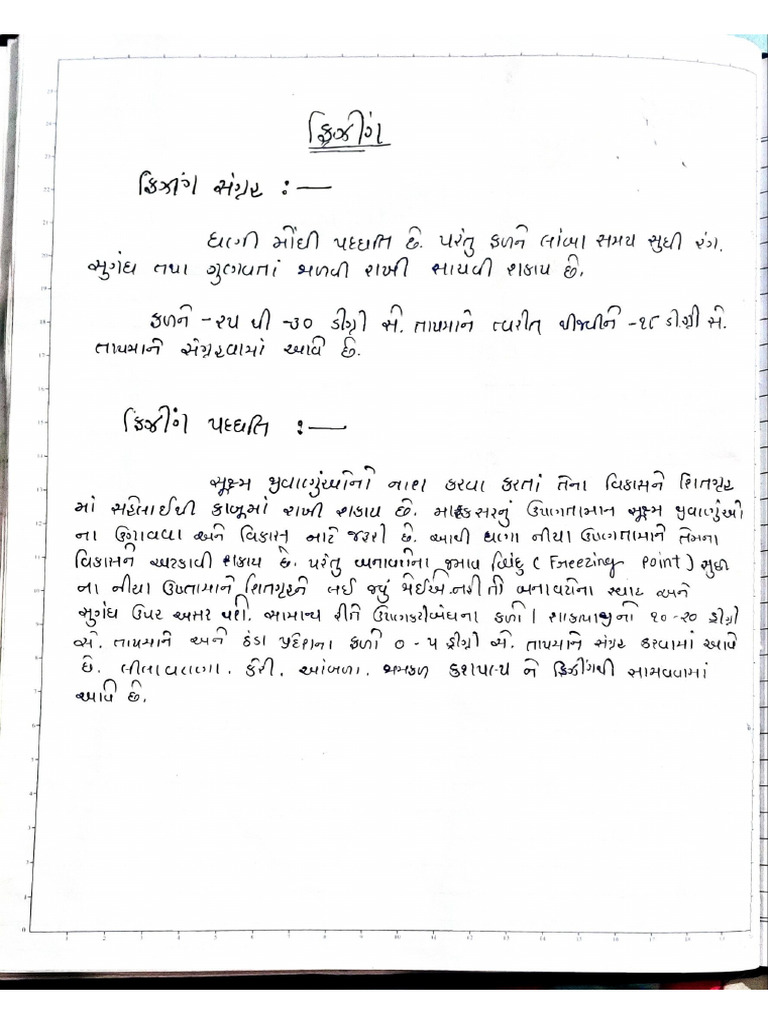 ફ્રિઝીંગ
ફ્રિઝીંગ સંગ્રહ :—
ઘણી મોંઘી પધ્ધતિ છે. પરંતુ ફળને લાંબા સમય સુધી રંગ,
સુગંધ તથા ગુણવતાં જાળવી રાખી સાચવી શકાય છે.
ફળને -૨૫ થી -૩૦ ડીગ્રી સે. તાપમાને ત્વરીત થીજવીને -૧૮ ડીગ્રી સે.
તાપમાને સંગ્રહવામાં આવે છે.
ફ્રિઝીંગ પધ્ધતિ :—
સૂક્ષ્મ જીવાણુંઓનો નાશ કરવા કરતાં તેના વિકાસને શિતગૃહ
માં સહેલાઈથી કાબૂમાં રાખી શકાય છે. માફકસરનું ઉષ્ણતામાન સૂક્ષ્મ જીવાણુંઓ
ના ઉગાવવા અને વિકાસ માટે જરૂરી છે. આથી ઘણા નીચા ઉષ્ણતામાને તેમના
વિકાસને અટકાવી શકાય છે. પરંતુ બનાવટોના જમાવ બિંદુ (Freezing point) સુધી
ના નીચા ઉષ્તામાને શિતગૃહને લઈ જવું જોઈએ નહીં તો બનાવટોના સ્વાદ અને
સુગંધ ઉપર અસર થશે. સામાન્ય રીતે ઉષ્ણકટીબંધના ફળો / શાકભાજીનો ૧૦-૨૦ ડીગ્રી
સે. તાપમાને અને ઠંડા પ્રદેશના ફળો ૦-૫ ડીગ્રી સે. તાપમાને સંગ્રહ કરવામાં આવે
છે. લીલાવટાણા, કેરી, આંબળા, જામફળ ને ફ્રિઝીંગથી સાચવવામાં
આવે છે.